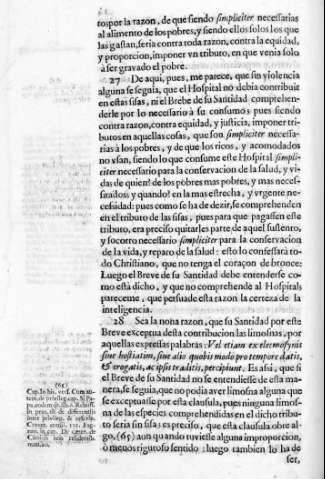 tos por la razon, de que siendo simpliciter necessarias
al alimento de los pobres, y siendo ellos solos los que
las gastan, seria contra toda razon, contra la equidad,
y proporcion, imponer vn tributo, en que venia solo
à ser gravado el pobre.
27 De aqui, pues, me parece, que sin violencia
alguna se seguia, que el Hospital no debia contribuir
en estas sisas, ni el Brebe de su Santidad comprehen-
derle por lo necessario à su consumo; pues siendo
contra razon, contra equidad, y justicia, imponer tri-
butos en aquellas cosas, que son simpliciter necessa-
rias à los pobres, y de que los ricos, y acomodados
no vsan, siendo lo que consume este Hospital simpli-
citer necessario para la conservacion de la salud, y vi-
das de quien? de los pobres mas pobres, y mas neces-
sitados: y quando? en la mas estrecha, y vrgente ne-
cessidad: pues como se ha de dezir, se comprehenden
en el tributo de las sisas, pues para que pagassen este
tributo, era preciso quitarles parte de aquel sustento,
y socorro necessario simpliciter para la conservacion
de la vida, y reparo de la salud: esto lo confessarà to-
do Christiano, que no tenga el coraçon de bronce;
Luego el Breve de su Santidad debe entenderse co-
mo està dicho, y que no comprehende al Hospital;
pareceme, que persuade esta razon la certeza de la
inteligencia.
28 Sea la nona razon, que su Santidad por este
Breve exceptua desta contribucion las limosnas, por
aquellas expressas palabras: Vel etiam ex eleemosynis
sive hostiatim, sive alio quovis modo pro tempore datis,
& erogatis, ac ipsis traditis, percipiunt. Es assi, que si
el Breve de su Santidad no se entendiesse de esta ma-
nera, se seguia, que no podia aver limosna alguna que
se exceptuasse por esta clausula, pues ninguna limos-
na de las especies comprehendidas en el dicho tribu-
to seria sin sisa: es preciso, que esta clausula obre al-
go, (65) aun quando tuviesse alguna improporcion,
ò menos riguroso sentido: luego tambien lo ha de
ser,
(65)
Cap.